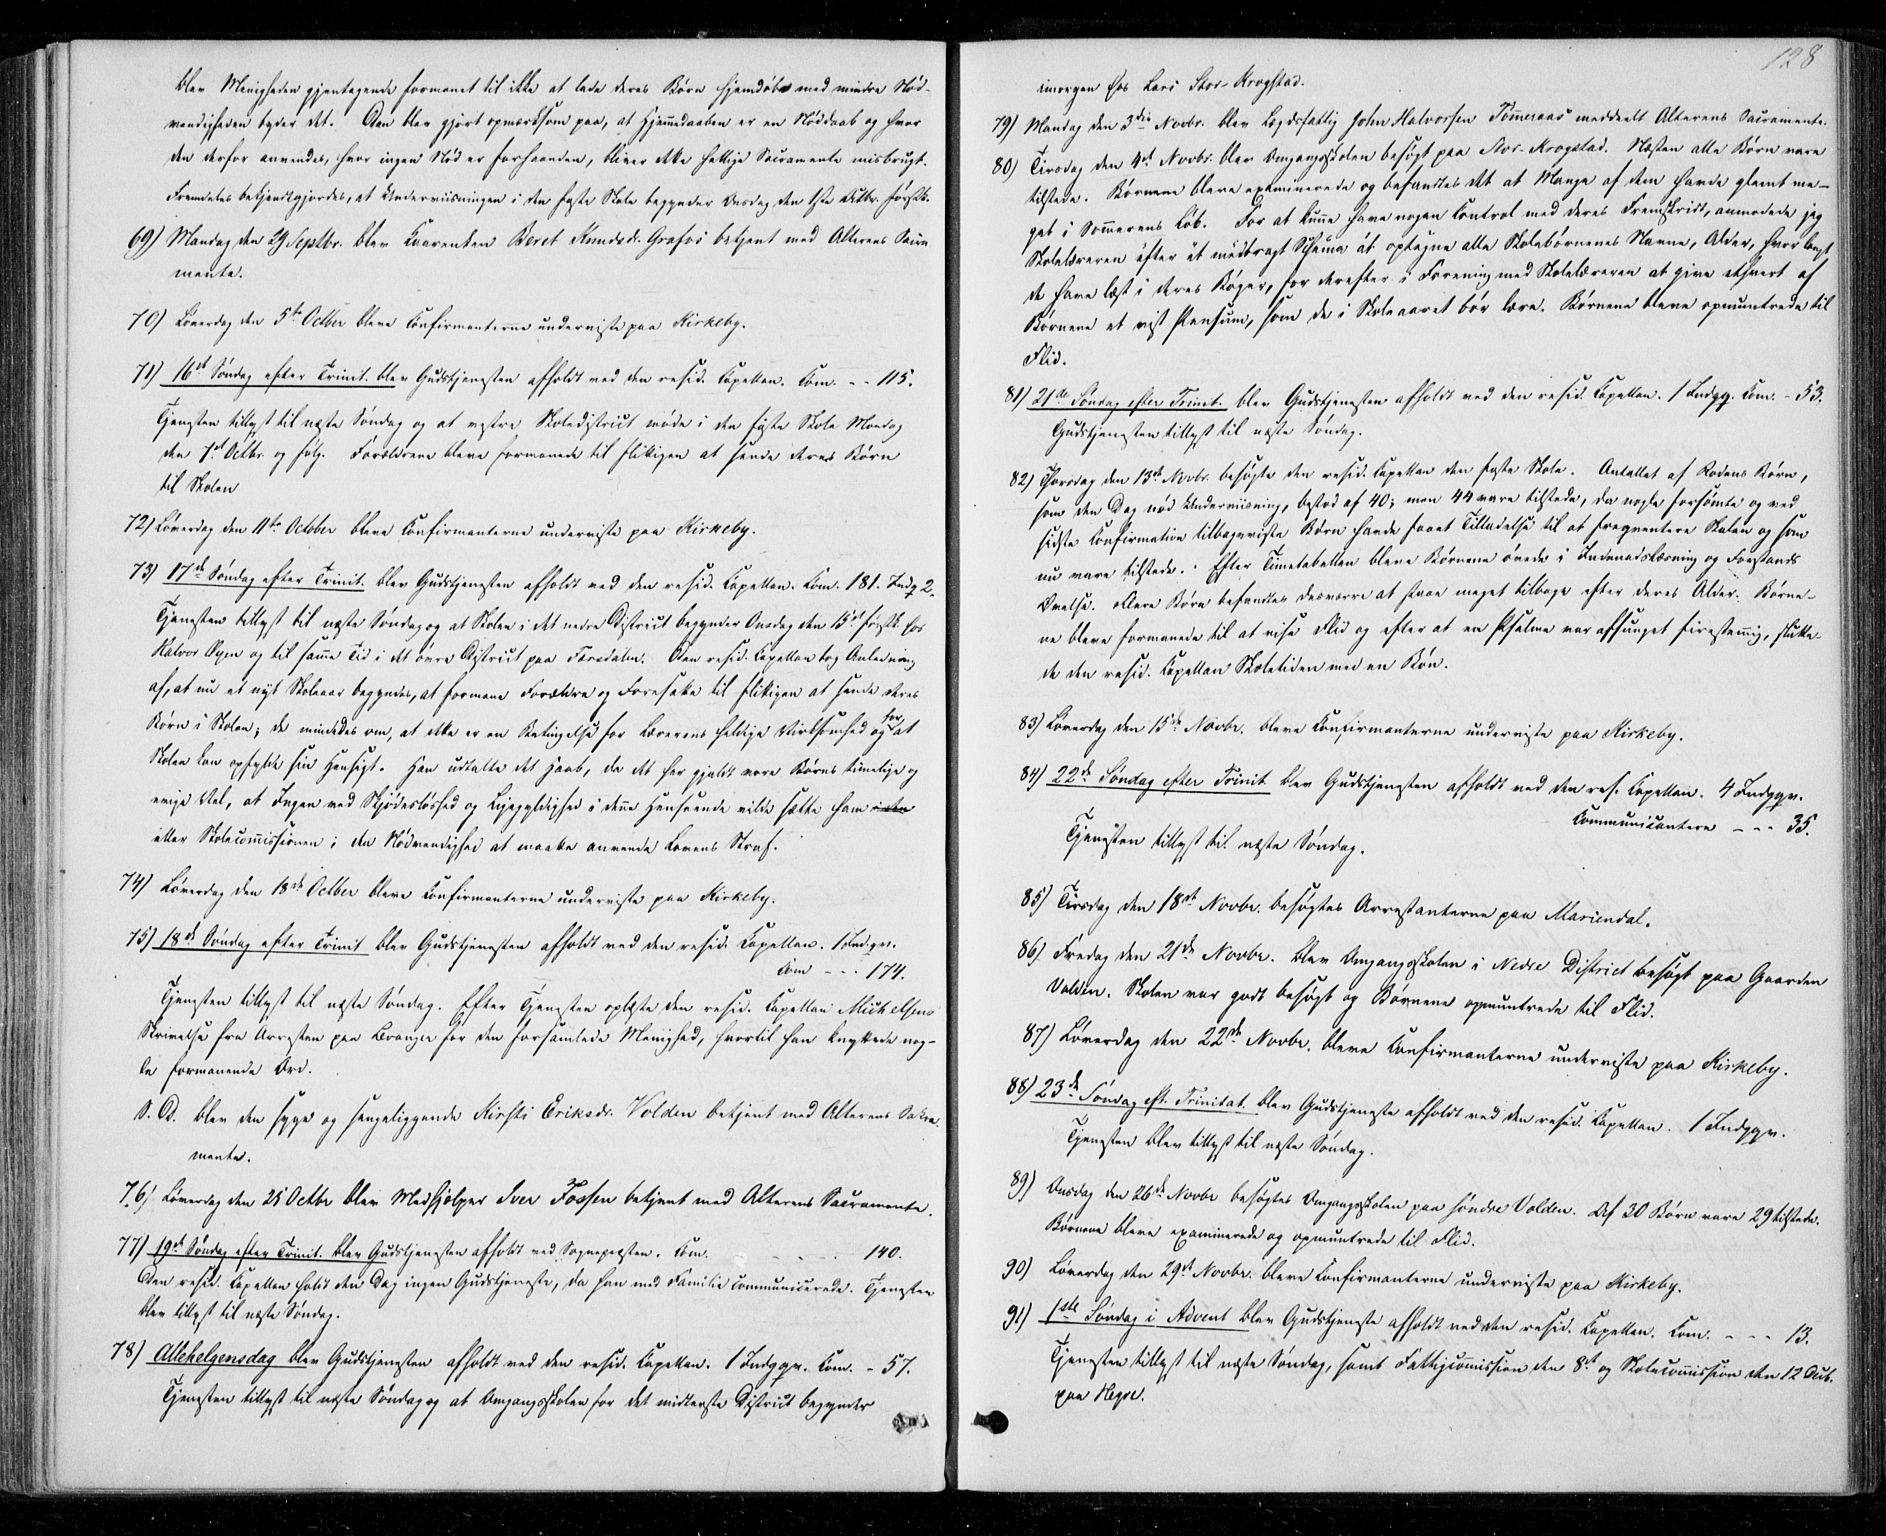 blev Menigheden gjentagende formanet til ikke at lade deres Børn hjemdøbe med mindre Nød-
vendigheden byder det. Den blev gjort opmærksom paa, at Hjemmedaaben er en Nøddaab og hvor
den derfor anvendes, hvor ingen Nød er forhaanden, bliver dette hellige Sacramente misbrugt.
Fremdeles bekjendtgjordes, at Underviisningen i den faste Skole begynder Onsdag den 1ste Octbr. førstk.
69) Mandag den 29 Septbr. blev Kaarenken Beret Knudsd. Grafos betjent med Alterens Sacra
mente.
70) Løverdag den 5te Octber bleve Confirmanterne underviste paa Kirkeby.
71) 16de Søndag efter Trinit. blev Gudstjenesten afholdt ved den resid. Capellan. Com. -- 115.
Tjenesten tillyst til næste Søndag og at vestre Skoledistrict møde i den faste Skole Mandag
den 7de Octbr. og følg. Forældrene bleve formanede til flittigen at sende deres Børn
til Skolen
72) Løverdag den 11te October bleve Confirmanterne underviste paa Kirkeby.
73) 17de Søndag efter Trinit. blev Gudstjenesten afholdt ved den resid. Capellan. Com. 181. Indg 2.
Tjenesten tillyst til næste Søndag og at Skolen i det nedre District begynder Onsdag den 15de førstk. hos
Halvor Øyen og til samme Tid i det øvre District paa Forsdalen. Den resid. Capellan tog Anledning
af, at nu et nyt Skoleaar begyndes, at formane Forældre og Foresatte til flittigen at sende deres
Børn i Skolen; de mindedes om, at dette er en Betingelse for Lærerens heldige Virksomhed og for at
Skolen kan opfylde sin Hensigt. Han udtalte det Haab, da det her gjaldt vore Børns timelige og
evige Vel, at Ingen ved Skjødesløshed og Ligegyldighed i denne Henseende vilde sætte ham
eller Skolecommissionen i den Nødvendighed at maatte anvende Lovens Straf.
74) Løverdag den 18de Octber bleve Confirmanterne underviste paa Kirkeby.
75) 18de Søndag efter Trinit blev Gudstjenesten afholdt ved den resid. Capellan. 1 Indgr.
Com --- 174.
Tjenesten tillyst til næste Søndag. Efter Tjenesten oplæste den resid. Capellan Michelsens
Skrivelse fra Arresten paa Levanger for den forsamlede Menighed, hvortil han knyttede nog-
le formanende Ord.
S. D. blev den syge og sengeliggende Kirsti Eriksdr. Volden betjent med Alterens Sakra
mente.
76) Løverdag den 25 Octbr blev Medhjelper Iver Fossen betjent med Alterens Sacramente.
77) 19de Søndag efter Trinit. blev Gudstjenesten afholdt ved Sognepræsten. Com. 140.
Den resid. Capellan holdt den Dag ingen Gudstjeneste, da han med Familie communicerede. Tjenesten
blev tillyst til næste Søndag.
78) Allehelgensdag blev Gudstjenesten afholdt ved den resid. Capellan. 1 Indggr. Com. - 57.
Tjenesten tillyst til næste Søndag og at Omgangsskolen for det midterste District begynder
128
imorgen hos Lars Stor-Krogstad.
79) Mandag den 3die Novbr. blev Lægdsfattig John Halvorsen Tømmeraas meddeelt Alterens Sacramente.
80) Tirsdag den 4de Novbr. blev Omgangsskolen besøgt paa Stor-Krogstad. Næsten alle Børn vare
tilstede. Børnene bleve examinerede og befandtes det at Mange af dem havde glemt me-
get i Sommerens Løb. For at kunne have nogen Control med deres Fremskridt, anmodede jeg
Skolelæreren efter et medbragt Schema at optegne alle Skolebørnenes Navne, Alder, hvor langt
de have læst i deres Bøger, for derefter i Forening med Skolelæreren at give ethvert af
Børnene et vist Pensum, som de i Skoleaaret bør lære. Børnene bleve opmuntrede til
Flid.
81) 21de Søndag efter Trinit. blev Gudstjenesten afholdt ved den resid. Capellan. 1 Indgg. Com. - 53.
Gudstjenesten tillyst til næste Søndag.
82) Thorsdag den 13de Novbr. besøgte den resid. Capellan den faste Skole. Antallet af Rodens Børn,
som den Dag nød Underviisning, bestod af 40; men 44 vare tilstede, da nogle forsømte og ved
sidste Confirmation tilbageviste Børn havde faaet Tilladelse til at frequentere Skolen og som
nu vare tilstede. Efter Timetabellen bleve Børnene øvede i Indenadslæsning og Forstands
Øvelse. Flere Børn befandtes desværre at staae meget tilbage efter deres Alder. Børne-
ne bleve formanede til at vise Flid og efter at en Psalme var afsunget firestemmig, slutte-
de den resid. Capellan Skoletiden med en Bøn.
83) Løverdag den 15de Novbr. bleve Confirmanterne underviste paa Kirkeby.
84) 22de Søndag efter Trinit blev Gudstjenesten afholdt ved den res. Capellan. 4 Indggr.
Communicantere --- 35.
Tjenesten tillyst til næste Søndag.
85) Tirsdag den 18de Novbr. besøgtes Arrestanterne paa Mariendal.
86) Fredag den 21de Novbr. blev Omgangsskolen i Nedre District besøgt paa Gaarden
Volden. Skolen var godt besøgt og Børnene opmuntrede til Flid.
87) Løverdag den 22de Novbr. bleve Confirmanterne underviste paa Kirkeby.
88) 23de Søndag eft. Trinitat. blev Gudstjeneste afholdt ved den resid. Capellan. 1 Indggr.
Tjenesten blev tillyst til næste Søndag.
89) Onsdag den 26de Novbr besøgtes Omgangsskolen paa søndre Volden. Af 30 Børn vare 29 tilstede.
Børnene bleve examinerede og opmuntrede til Flid.
90) Løverdag den 29de Novbr. bleve Confirmanterne underviste paa Kirkeby.
91) 1ste Søndag i Advent blev Gudstjeneste afholdt ved den resid. Capellan. Com. --- 13.
Tjenesten tillyst til næste Søndag, samt Fattigcommission den 8de og Skolecommission den 12
paa Hegre.